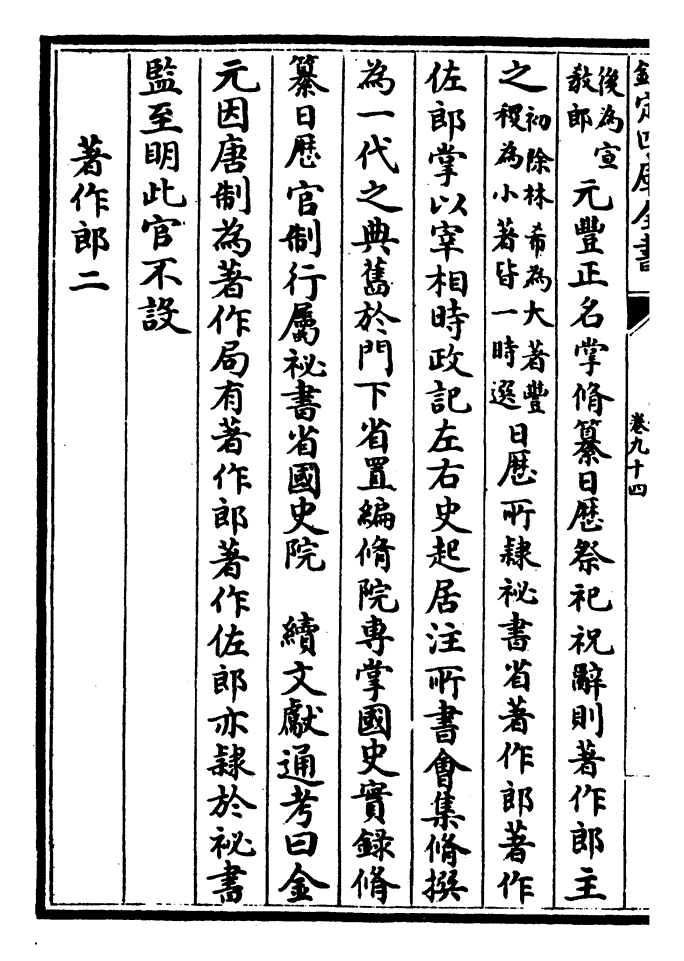 欽定四庫全書
卷九十四
後為宣
教郎
元豐正名掌脩纂日厯祭祀祝辭則著作郎主
之
初除林希為大著豐
稷為小著皆一時選
日厯所隷祕書省著作郎著作
佐郎掌以宰相時政記左右史起居注所書會集脩撰
為一代之典舊於門下省置編脩院専掌國史實録脩
纂日厯官制行屬祕書省國史院　續文獻通考曰金
元因唐制為著作局有著作郎著作佐郎亦隷於祕書
監至明此官不設
著作郎二